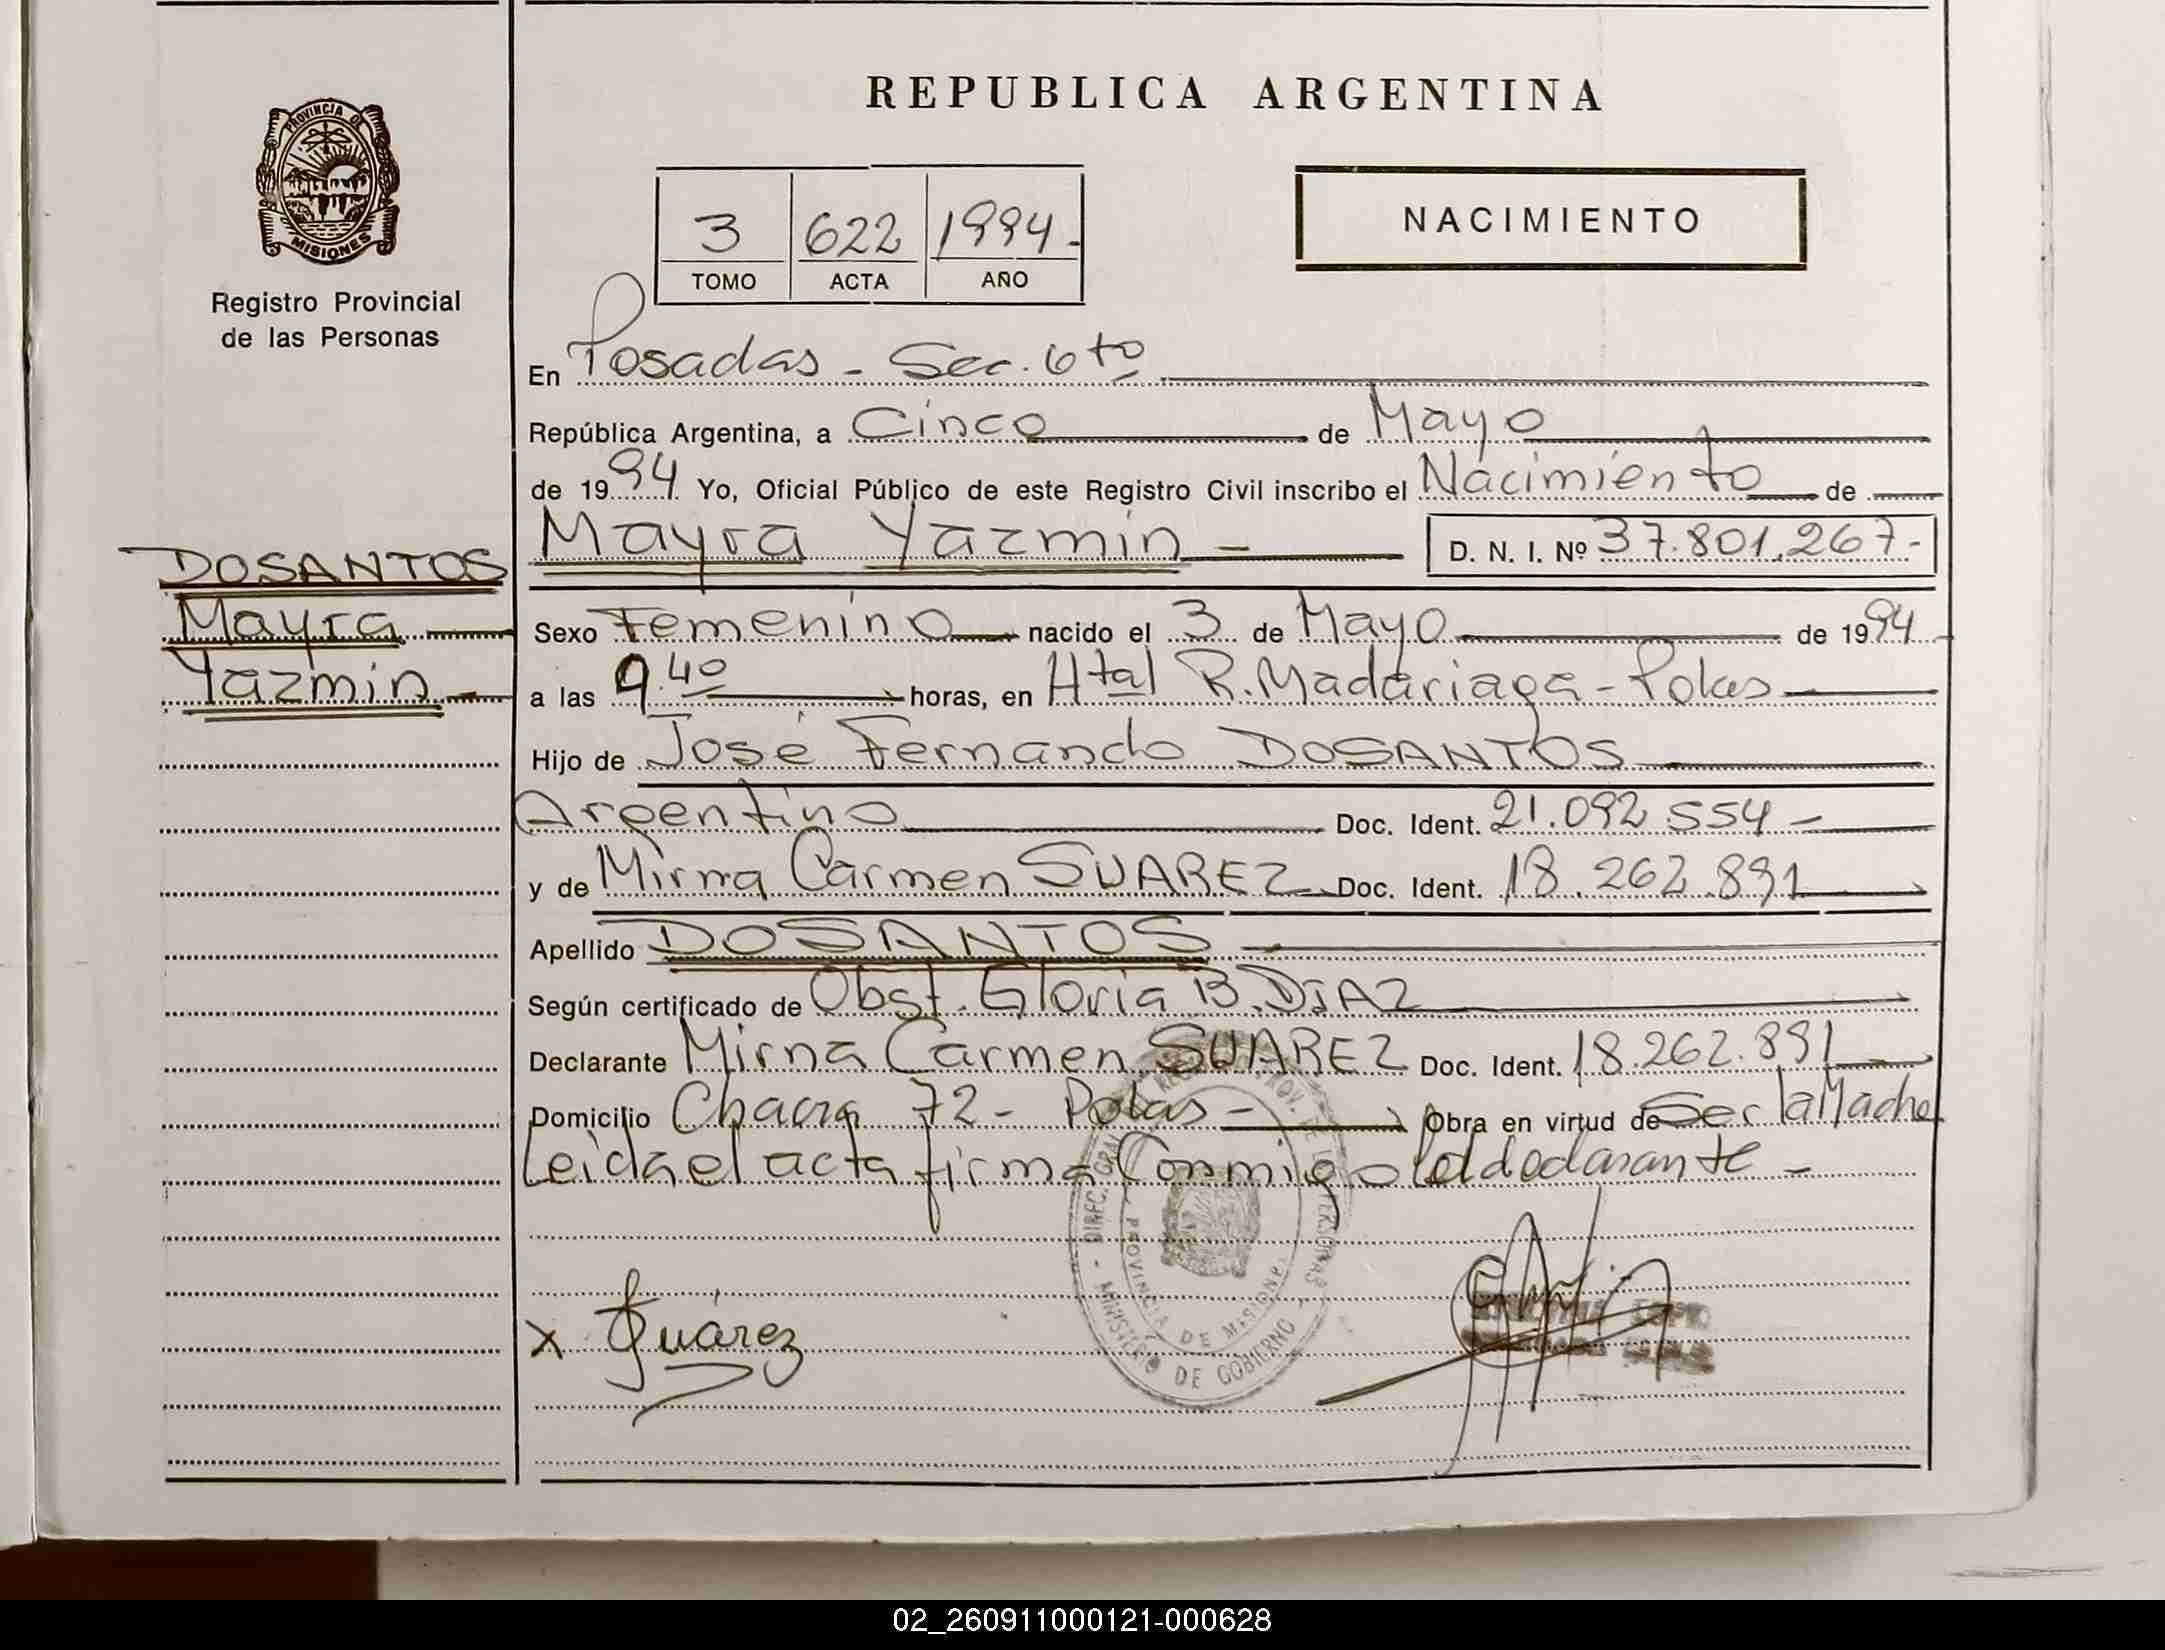 REPUBLICA ARGENTINA
PROVINCIA DE
MISIONES
Registro Provincial
de las Personas
3 622 1994-
TOMO ACTA AÑO
NACIMIENTO
En Posadas - Sec. 6to
República Argentina, a Cinco de Mayo
de 1994 Yo, Oficial Público de este Registro Civil inscribo el Nacimiento de
DOSANTOS
Mayra
Yazmin
Mayra Yazmin - D. N. I. Nº 37.801.267-
Sexo Femenino nacido el 3 de Mayo de 1994
a las 9.40 horas, en Htal R. Madariaga - Pdas
Hijo de José Fernando DOSANTOS
Argentino Doc. Ident. 21.092.554-
y de Mirna Carmen SUAREZ Doc. Ident. 18.262.891
Apellido DOSANTOS
Según certificado de Obst. Gloria B. DIAZ
Declarante Mirna Carmen SUAREZ Doc. Ident. 18.262.891
Domicilio Chacra 72 - Pdas - Obra en virtud de Ser la Madre
Leida el acta firma Conmigo la declarante -
PROVINCIA DE MISIONES
MINISTERIO DE GOBIERNO
x Suárez
02_260911000121-000628